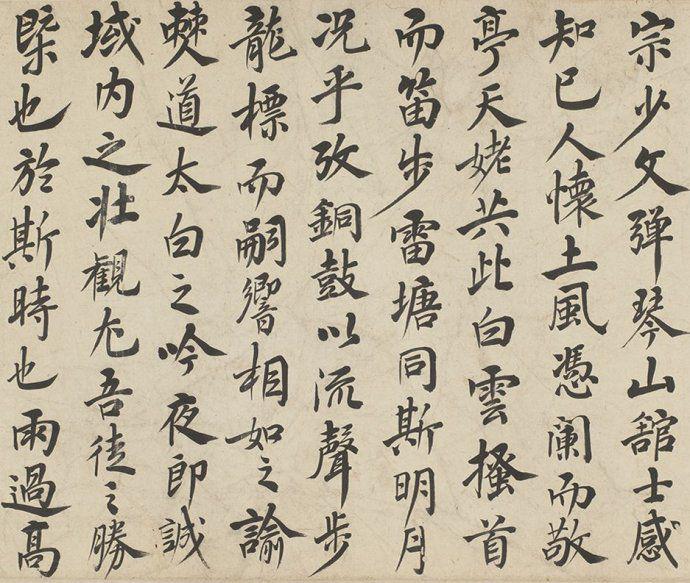 宗少文弹琴山舘士感
知已人懷土風憑阑而敬
亭天姥共此白雲搔首
而笛步雷塘同斯明月
况乎攷銅鼓以流聲步
龍標而嗣響相如之諭
僰道太白之吟夜郎誠
域内之壮觀尤吾徒之勝
槩也於斯時也雨過高